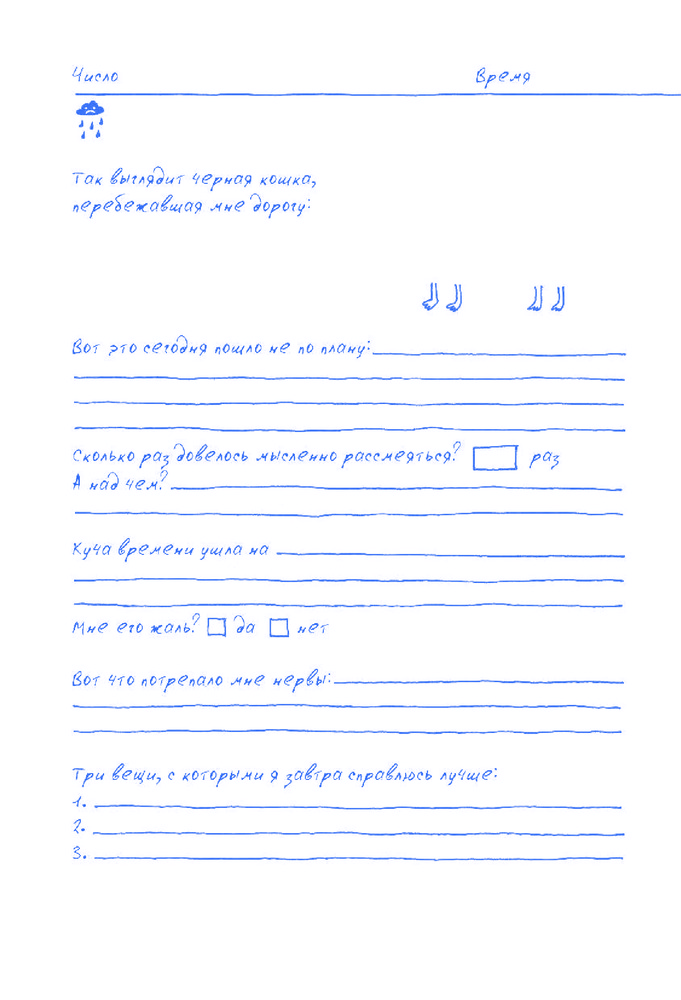 Число Время
Так выглядит черная кошка,
перебежавшая мне дорогу:
Вот это сегодня пошло не по плану:
Сколько раз довелось мысленно рассмеяться? раз
А над чем?
Куча времени ушла на
Мне его жаль? да нет
Вот что потрепало мне нервы:
Три вещи, с которыми я завтра справлюсь лучше:
1.
2.
3.